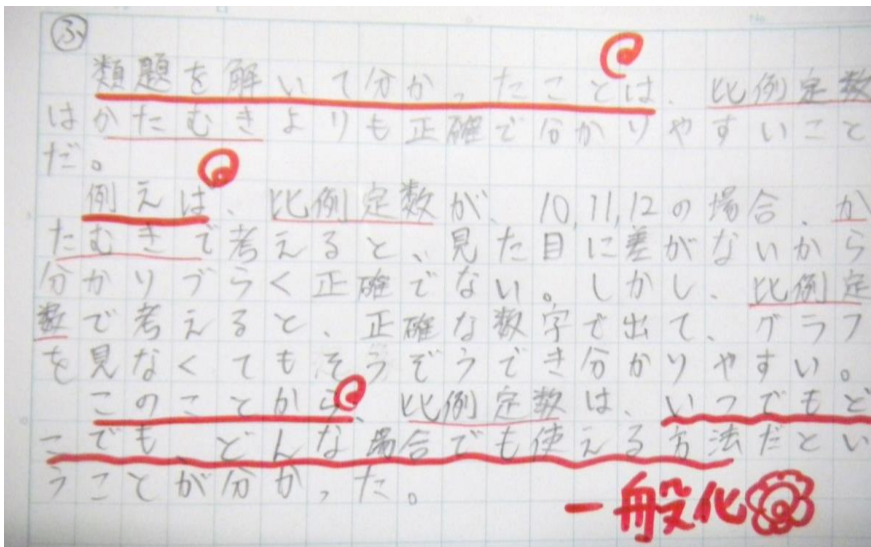 ふ
類題を解いて分かったことは、比例定数
はかたむきよりも正確で分かりやすいこと
だ。
例えは、比例定数が、10,11,12の場合、か
たむきで考えると、見た目に差がないから
分かりづらく正確でない。しかし、比例定
数で考えると、正確な数字で出て、グラフ
を見なくてもそうぞうでき分かりやすい。
このことから、比例定数は、いつでもど
こでも、どんな場合でも使える方法だとい
うことが分かった。
一般化